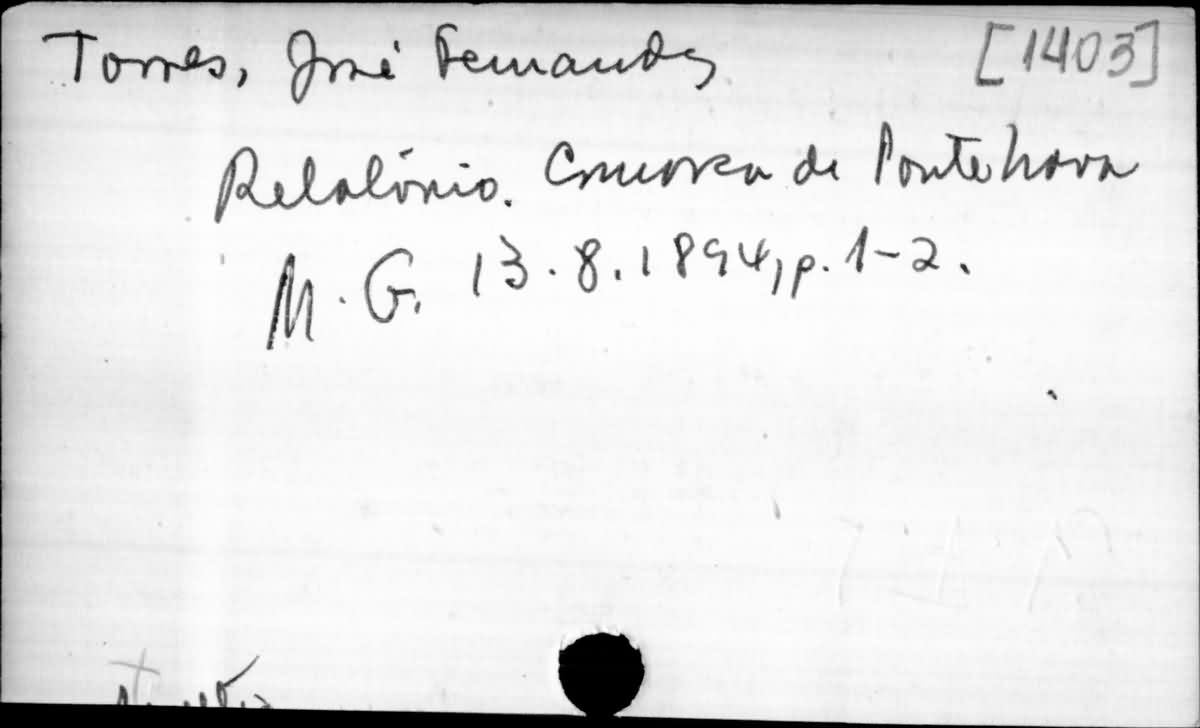 Torres, José Fernandes [1403]
Relatório. Comarca de Ponte Nova
M. G. 13.8.1894, p. 1-2.